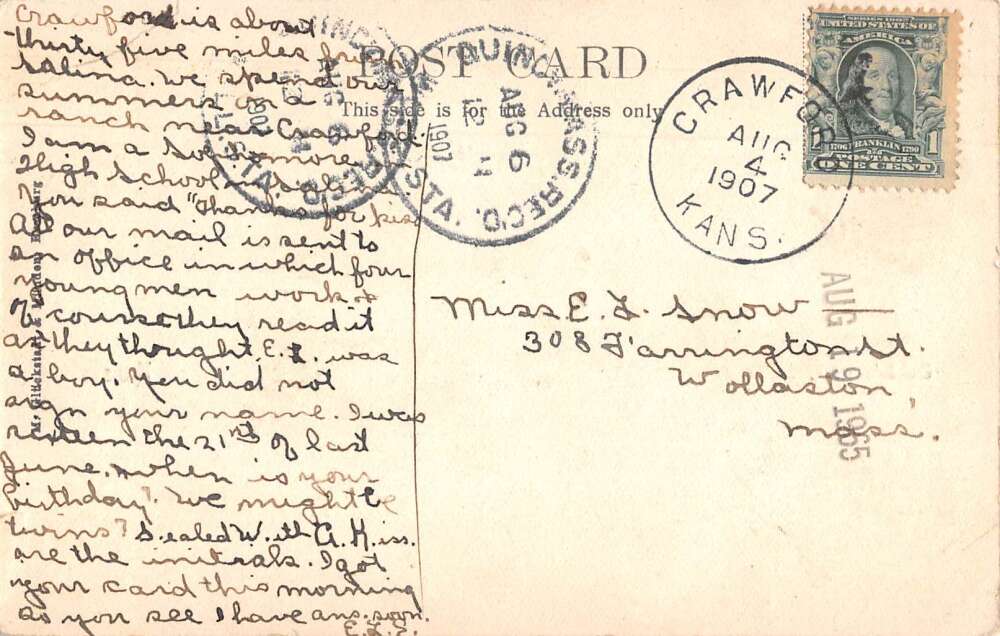 Crawford is about
thirty five miles from
Salina. We spend our
summers on a
ranch near Crawford.
I am a Sophomore
High School in
You said "Thanks for kis
All our mail is sent to
an office in which four
young men work &
of course they read it
as they thought E. L. was
a boy. You did not
sign your name. I was
sixteen the 21st of last
June. When is your
birthday? We might be
twins? Sealed With A. Kiss.
are the initials. I got
your card this morning
as you see I have ans. soon.
POST CARD
This side is for the Address only
QUINCY, MASS. REC'D.
AUG 6
12 M
1907
STA.
CRAWFORD
AUG
4
1907
KANS.
SERIES 1902
UNITED STATES OF
AMERICA
1706 FRANKLIN 1790
POSTAGE
ONE CENT
1
Miss E. F. Snow
308 Farrington St.
Wollaston
Mass.
AUG 19 1965